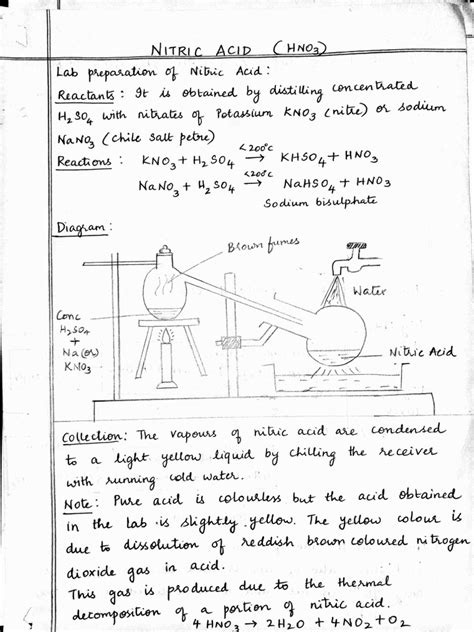 NITRIC ACID (HNO₃)
Lab preparation of Nitric Acid :
Reactants : It is obtained by distilling concentrated
H₂SO₄ with nitrates of Potassium KNO₃ (nitre) or sodium
NaNO₃ (chile salt petre)
Reactions : KNO₃ + H₂SO₄ <200°c → KHSO₄ + HNO₃
NaNO₃ + H₂SO₄ <200°c → NaHSO₄ + HNO₃
Sodium bisulphate
Diagram :
Brown fumes
Water
Conc
H₂SO₄
+
Na (or)
KNO₃
Nitric Acid
Collection : The vapours of nitric acid are condensed
to a light yellow liquid by chilling the receiver
with running cold water.
Note : Pure acid is colourless but the acid obtained
in the lab is slightly yellow. The yellow colour is
due to dissolution of reddish brown coloured nitrogen
dioxide gas in acid.
This gas is produced due to the thermal
decomposition of a portion of nitric acid.
4 HNO₃ → 2H₂O + 4NO₂ + O₂